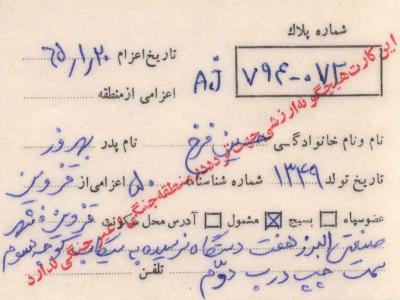 شماره پلاك
تاریخ اعزام ۶۵/۱/۲۰
AJ ۷۹۴-۰۷۲
اعزامی از منطقه
نام و نام خانوادگی فرخ نام پدر بهروز
تاریخ تولد ۱۳۴۹ شماره شناسنامه ۵۰ اعزامی از قزوین
عضو سپاه بسیج مشمول آدرس محل سکونت قزوین شهر
صنعتی البرز هفت دستگاه نرسیده به کوچه سوم
سمت چپ درب دوم تلفن
این کارت هیچگونه ارزشی جهت تردد در منطقه جنگی و غیر جنگی ندارد